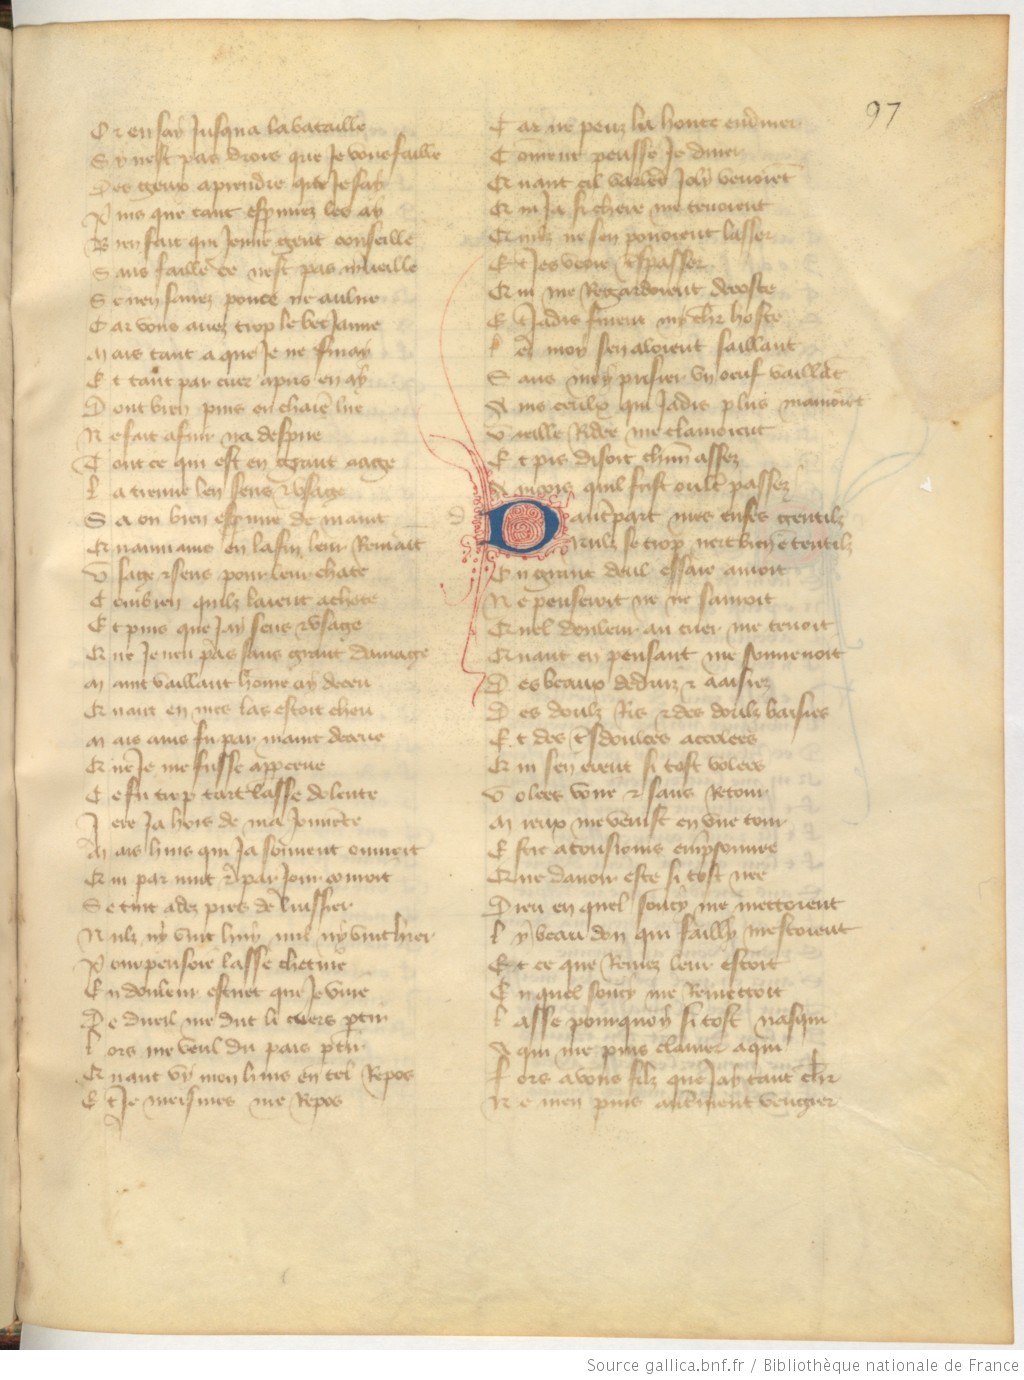 97
Or en say jusqua la bataille
Sy nest pas drois que je vous faille
Des gieux aprendre que je say
Puis que tant esprouvez les ay
Bien fait qui jeune gent conseille
Sans faille ce nest pas mueille
Se nen savez ponce ne aulne
Car vous avez trop le bec jaune
Mais tant a que je ne finay
Et tant par cuer apris en ay
Dont bien puis en chaiere lire
Ne fait a fuir na despire
Tout ce qui est en grant aage
La treuve len sens et usage
Sa on bien espreuve de maint
Quaumains en la fin leur remaint
Usage et sens pour leur chate
Combien quilz laient achate
Et puis que jay sens et usage
Que je neu pas sans grant damage
Maint vaillant home ay deceu
Quant en mes las estoit cheu
Mais ains fu par maint deceue
Que je me fusse apperceue
Ce fu trop tart lasse dolente
Jere ja hors de ma jouvente
Mais huis qui ja souvent ouvroit
Qui par nuit et par jour ouvroit
Se tint adez pres de luissier
Nulz ny vint huy nul ny vint hier
Pourpensoie lasse chetive
En douleur estuet que je vive
De dueil me dut li cuers partir
Lors me veul du pais partir
Quant vy mon huis en tel repos
Et je meismes me repos
Car ne peuz la honte endurer
Coment peusse je durer
Quant cil varlet joly venoient
Qui ja si chere me tenoient
Quilz ne sen povoient lasser
Et jes veoie trespasser
Qui me regardoient de coste
Et jadis furent my chr hoste
Lez moy sen aloient saillant
Sans moy prisier un oeuf vaillant
Ains ceulx qui jadis plus mamoient
Vieille ridee me clamoient
Et pis disoit chascun assez
Aincois quil feist oultre passez
Dautpart mes enfes gentilz
Nulz se trop nert bien ententilz
Ou grant deul essaie avoit
Ne penseroit ne ne savoit
Quel douleur au cuer me tenoit
Quant en pensant me souvenoit
Des beaux dedunz et aaisiez
Des doulz ris et des doulz baisies
Et des tresdoulces accolees
Qui sen erent si tost volees
Volees voire et sans retour
Mieux me venist en une tour
Estre a tousiours emprisonnee
Que davoir este si tost nee
Dieu en quel soucy me mettoient
Ly beau don qui failly mestoient
Et ce que remez leur estoit
En quel soucy me remettoit
Lasse pourquoy si tost nasqui
A qui me puis clamer a qui
Fors a vous filz que jay tant chr
Ne men puis autrement vengier
Source gallica.bnf.fr / Bibliothèque nationale de France